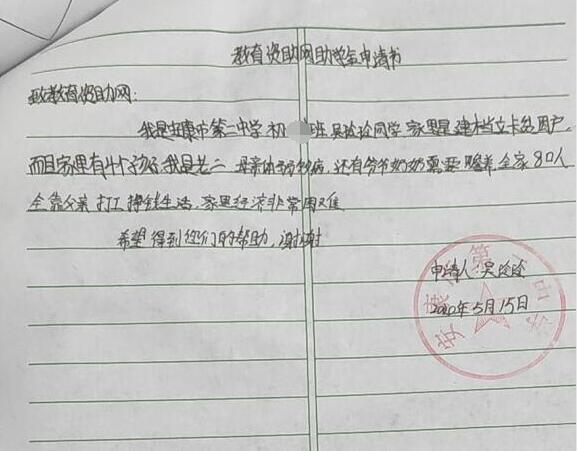 教育资助网助学金申请书
致教育资助网:
我是安康市第二中学初 班吴玲玲同学 家里是建档立卡贫困户,
而且家里有4个孩子,我是老二 母亲体弱多病,还有爷爷奶奶需要赡养全家8口人
全靠父亲打工挣钱生活,家里经济非常困难
希望得到您们的帮助,谢谢
申请人:吴玲玲
2020年5月15日